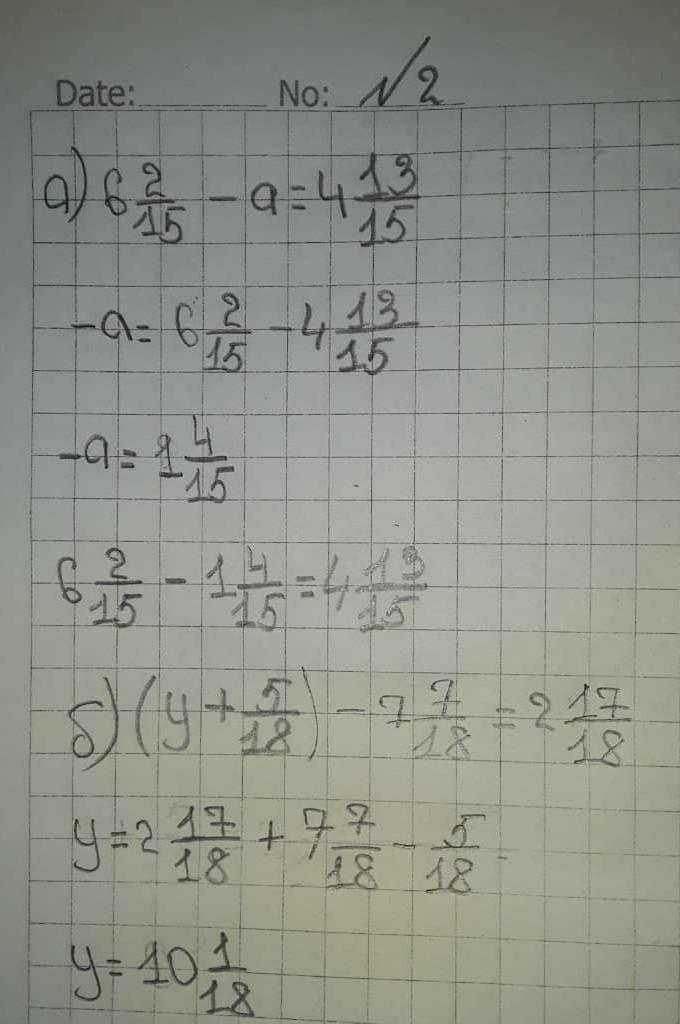 Date: No: №2
а) 6 2/15 - a = 4 13/15
-a = 6 2/15 - 4 13/15
-a = 1 4/15
6 2/15 - 1 4/15 = 4 13/15
б) (y + 5/18) - 7 7/18 = 2 17/18
y = 2 17/18 + 7 7/18 - 5/18
y = 10 1/18